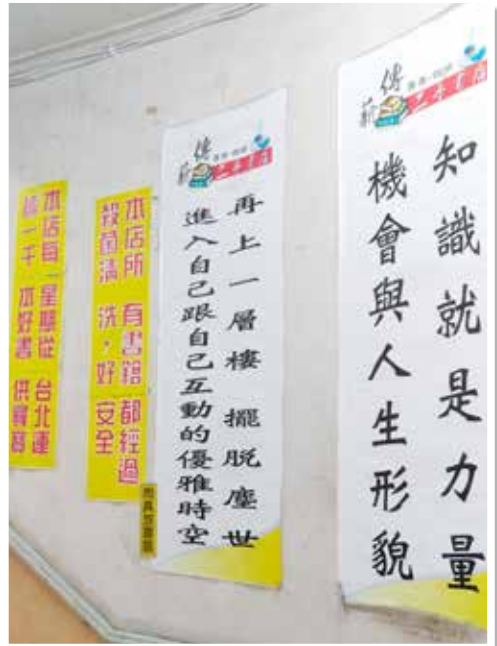 薪傳
知識就是力量
機會與人生形貌
薪傳
再上一層樓 擺脫塵世
進入自己跟自己互動的優雅時空
本店所 有書籍 都經過
殺菌清 洗,好 安全
本店每一星期從 台北運
一千 本好書 供尋寶